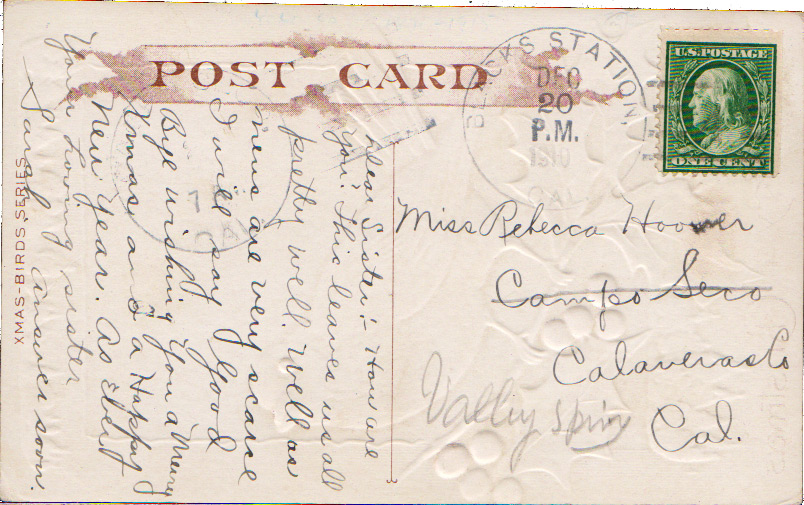 POST CARD
BLACKS STATION,
DEC
20
P.M.
1910
CAL.
U.S. POSTAGE
ONE CENT
Miss Rebecca Hoover
Campo Seco
Calaveras Co
Cal.
Valley Spin
Dear Sister:- How are
you? This leaves us all
pretty well. Well as
news are very scarce
I will say Good
Bye wishing You a Merry
Xmas and a Happy
New Year. As Ever
Your Loving sister
Sarah answer soon.
XMAS-BIRDS SERIES